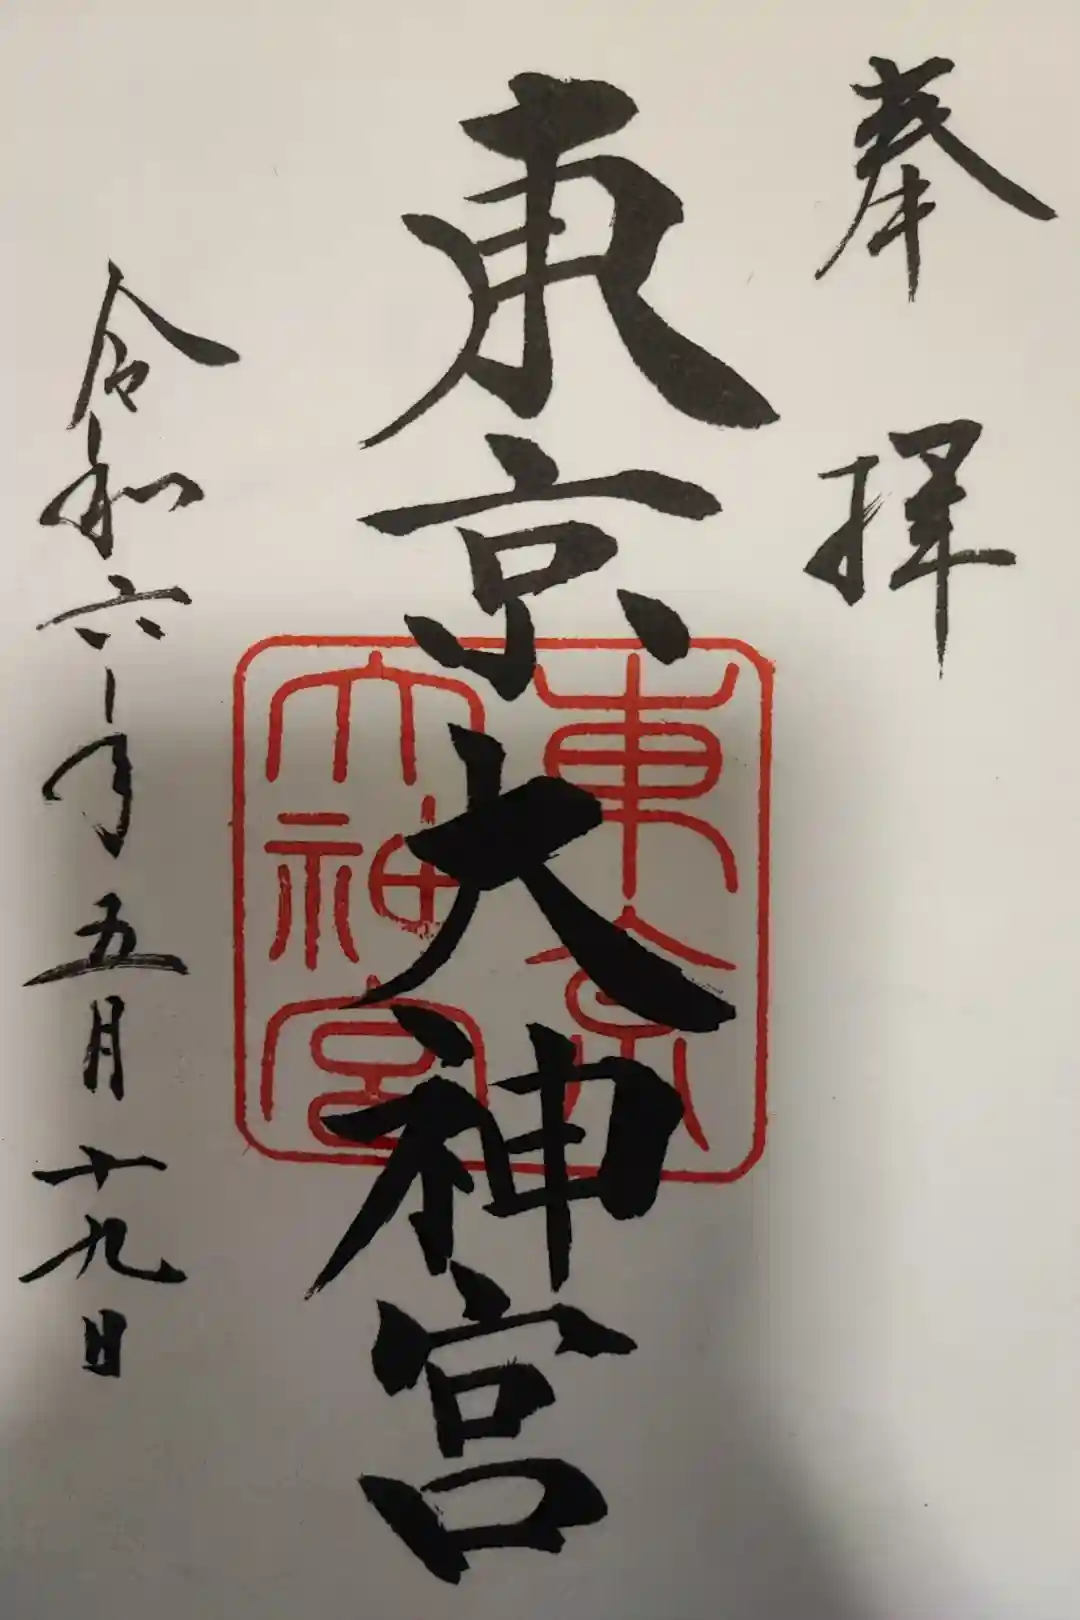 奉拝
東京大神宮
東京大神宮
令和六年五月十九日